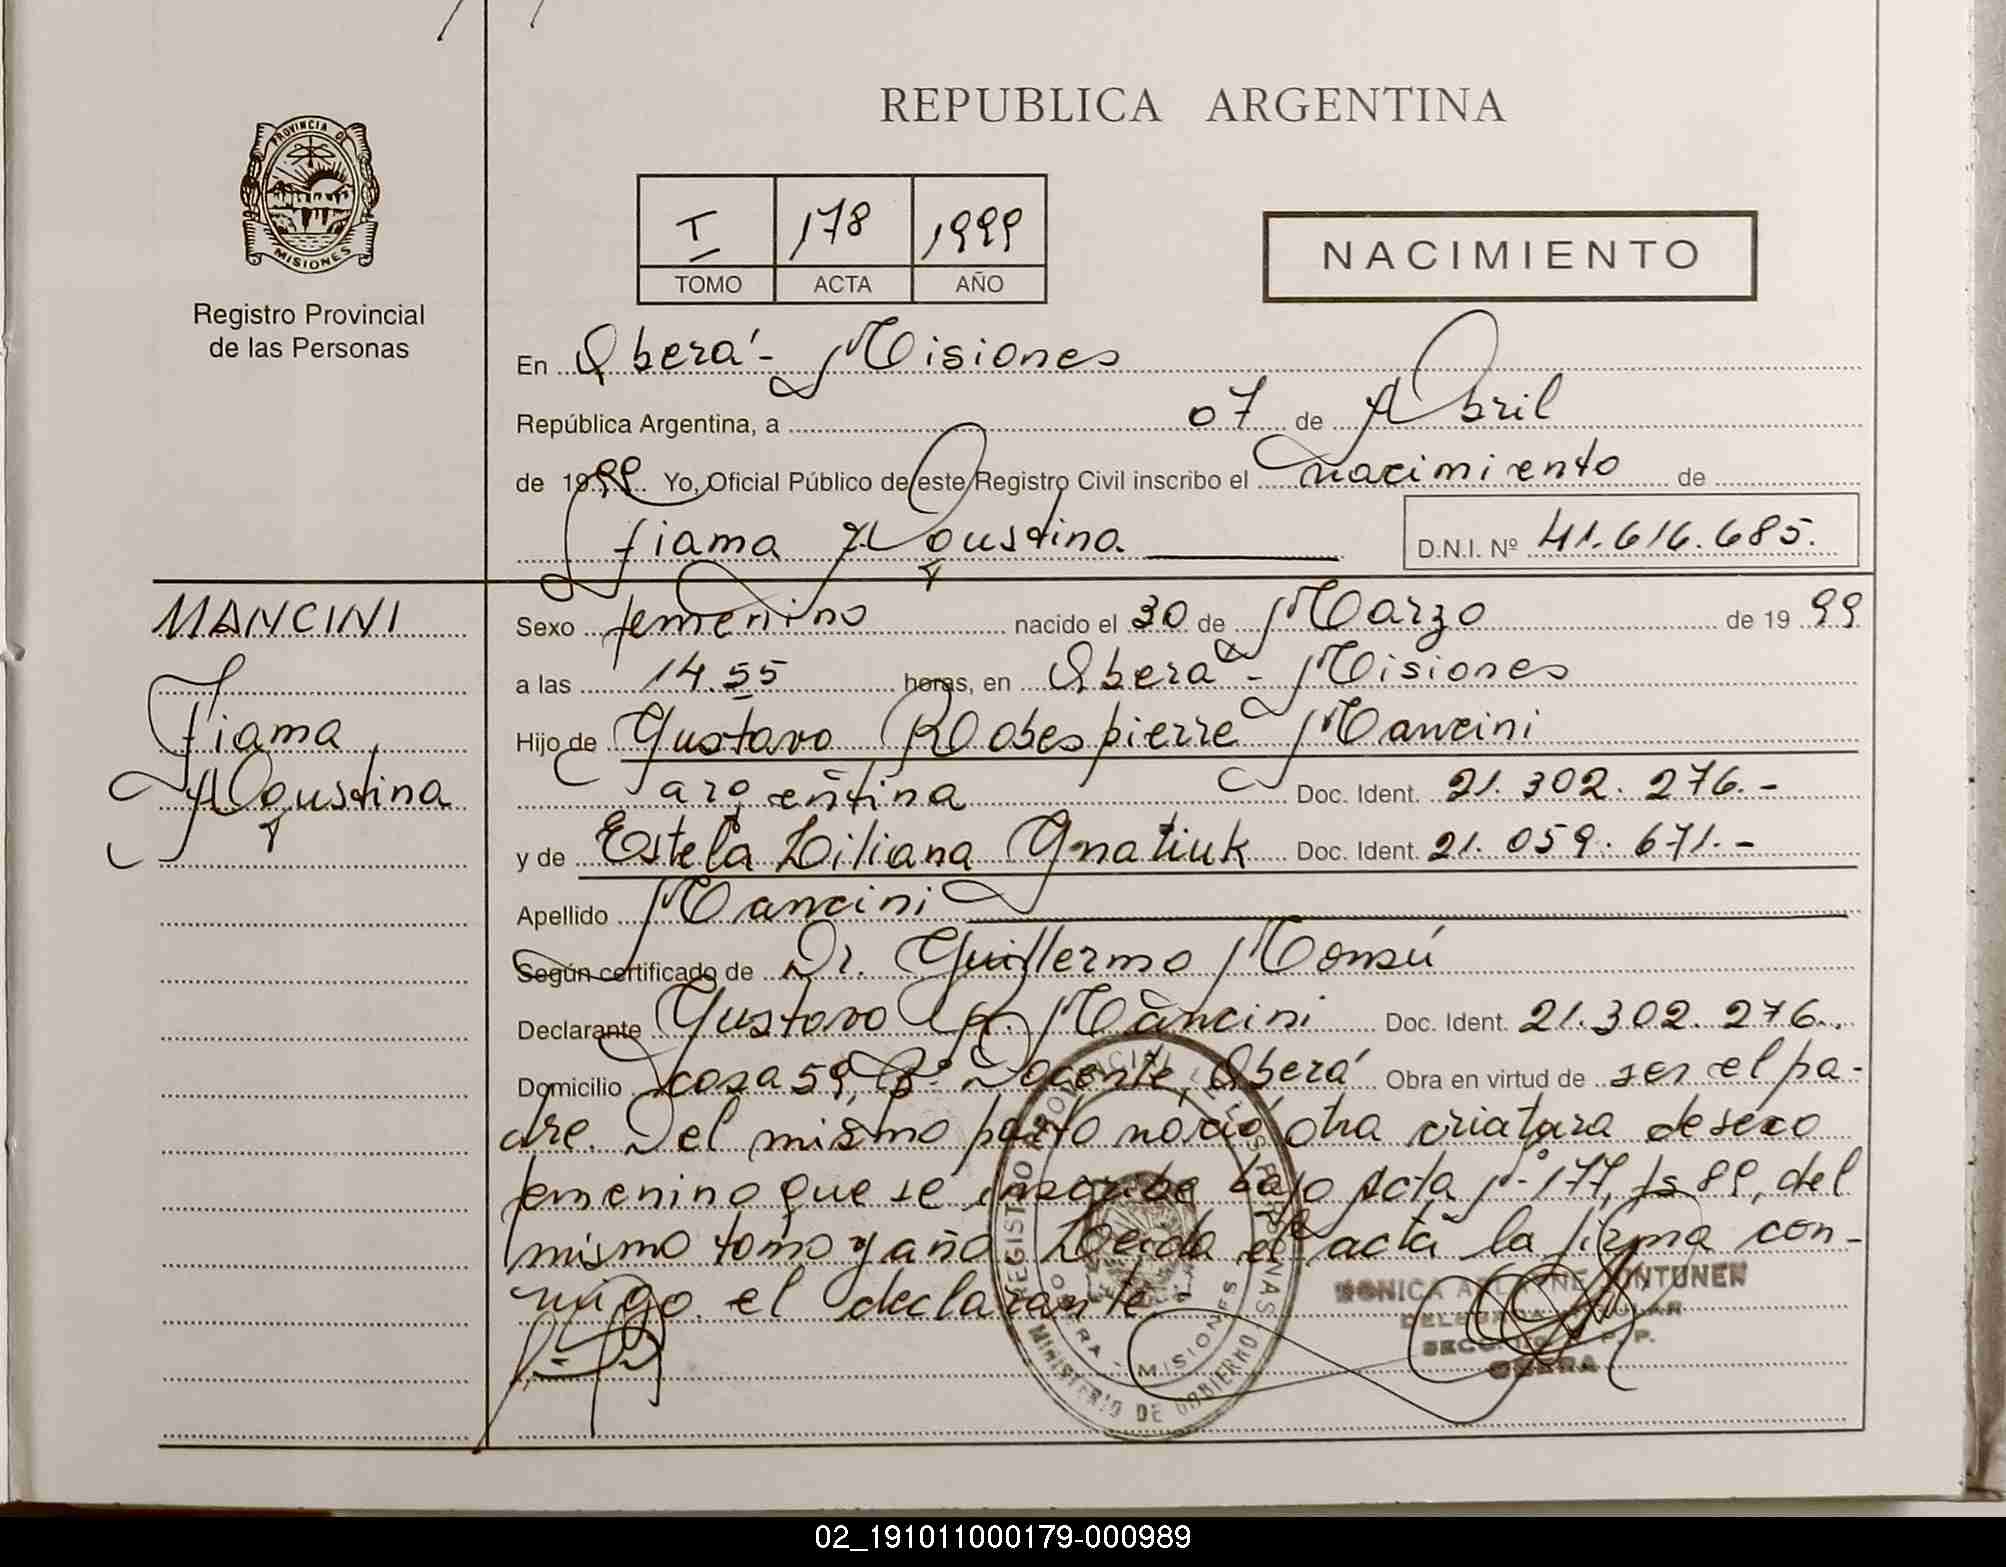 REPUBLICA ARGENTINA
PROVINCIA DE
MISIONES
Registro Provincial
de las Personas
I 178 1999
TOMO ACTA AÑO
NACIMIENTO
En Oberá - Misiones
República Argentina, a 07 de Abril
de 1999 Yo, Oficial Público de este Registro Civil inscribo el nacimiento de
Fiama Agustina
D.N.I. Nº 41.616.685.
MANCINI
Fiama
Agustina
Sexo femenino nacido el 30 de Marzo de 1999
a las 14.55 horas, en Oberá - Misiones
Hijo de Gustavo Robespierre Mancini
argentina Doc. Ident. 21.302.276.-
y de Estela Liliana Gnatiuk Doc. Ident. 21.059.671.-
Apellido Mancini
Según certificado de Dr. Guillermo Monsú
Declarante Gustavo R. Mancini Doc. Ident. 21.302.276.
Domicilio casa 59, Bº Docente, Oberá Obra en virtud de ser el pa-
dre. Del mismo parto nació otra criatura de sexo
femenino que se inscribe bajo Acta Nº 177, fs 89, del
mismo tomo y año Leida el acta la firma con-
migo el declarante.-
REGISTRO PROVINCIAL DE LAS PERSONAS
OBERA - MISIONES
MINISTERIO DE GOBIERNO
OBERA
02_191011000179-000989